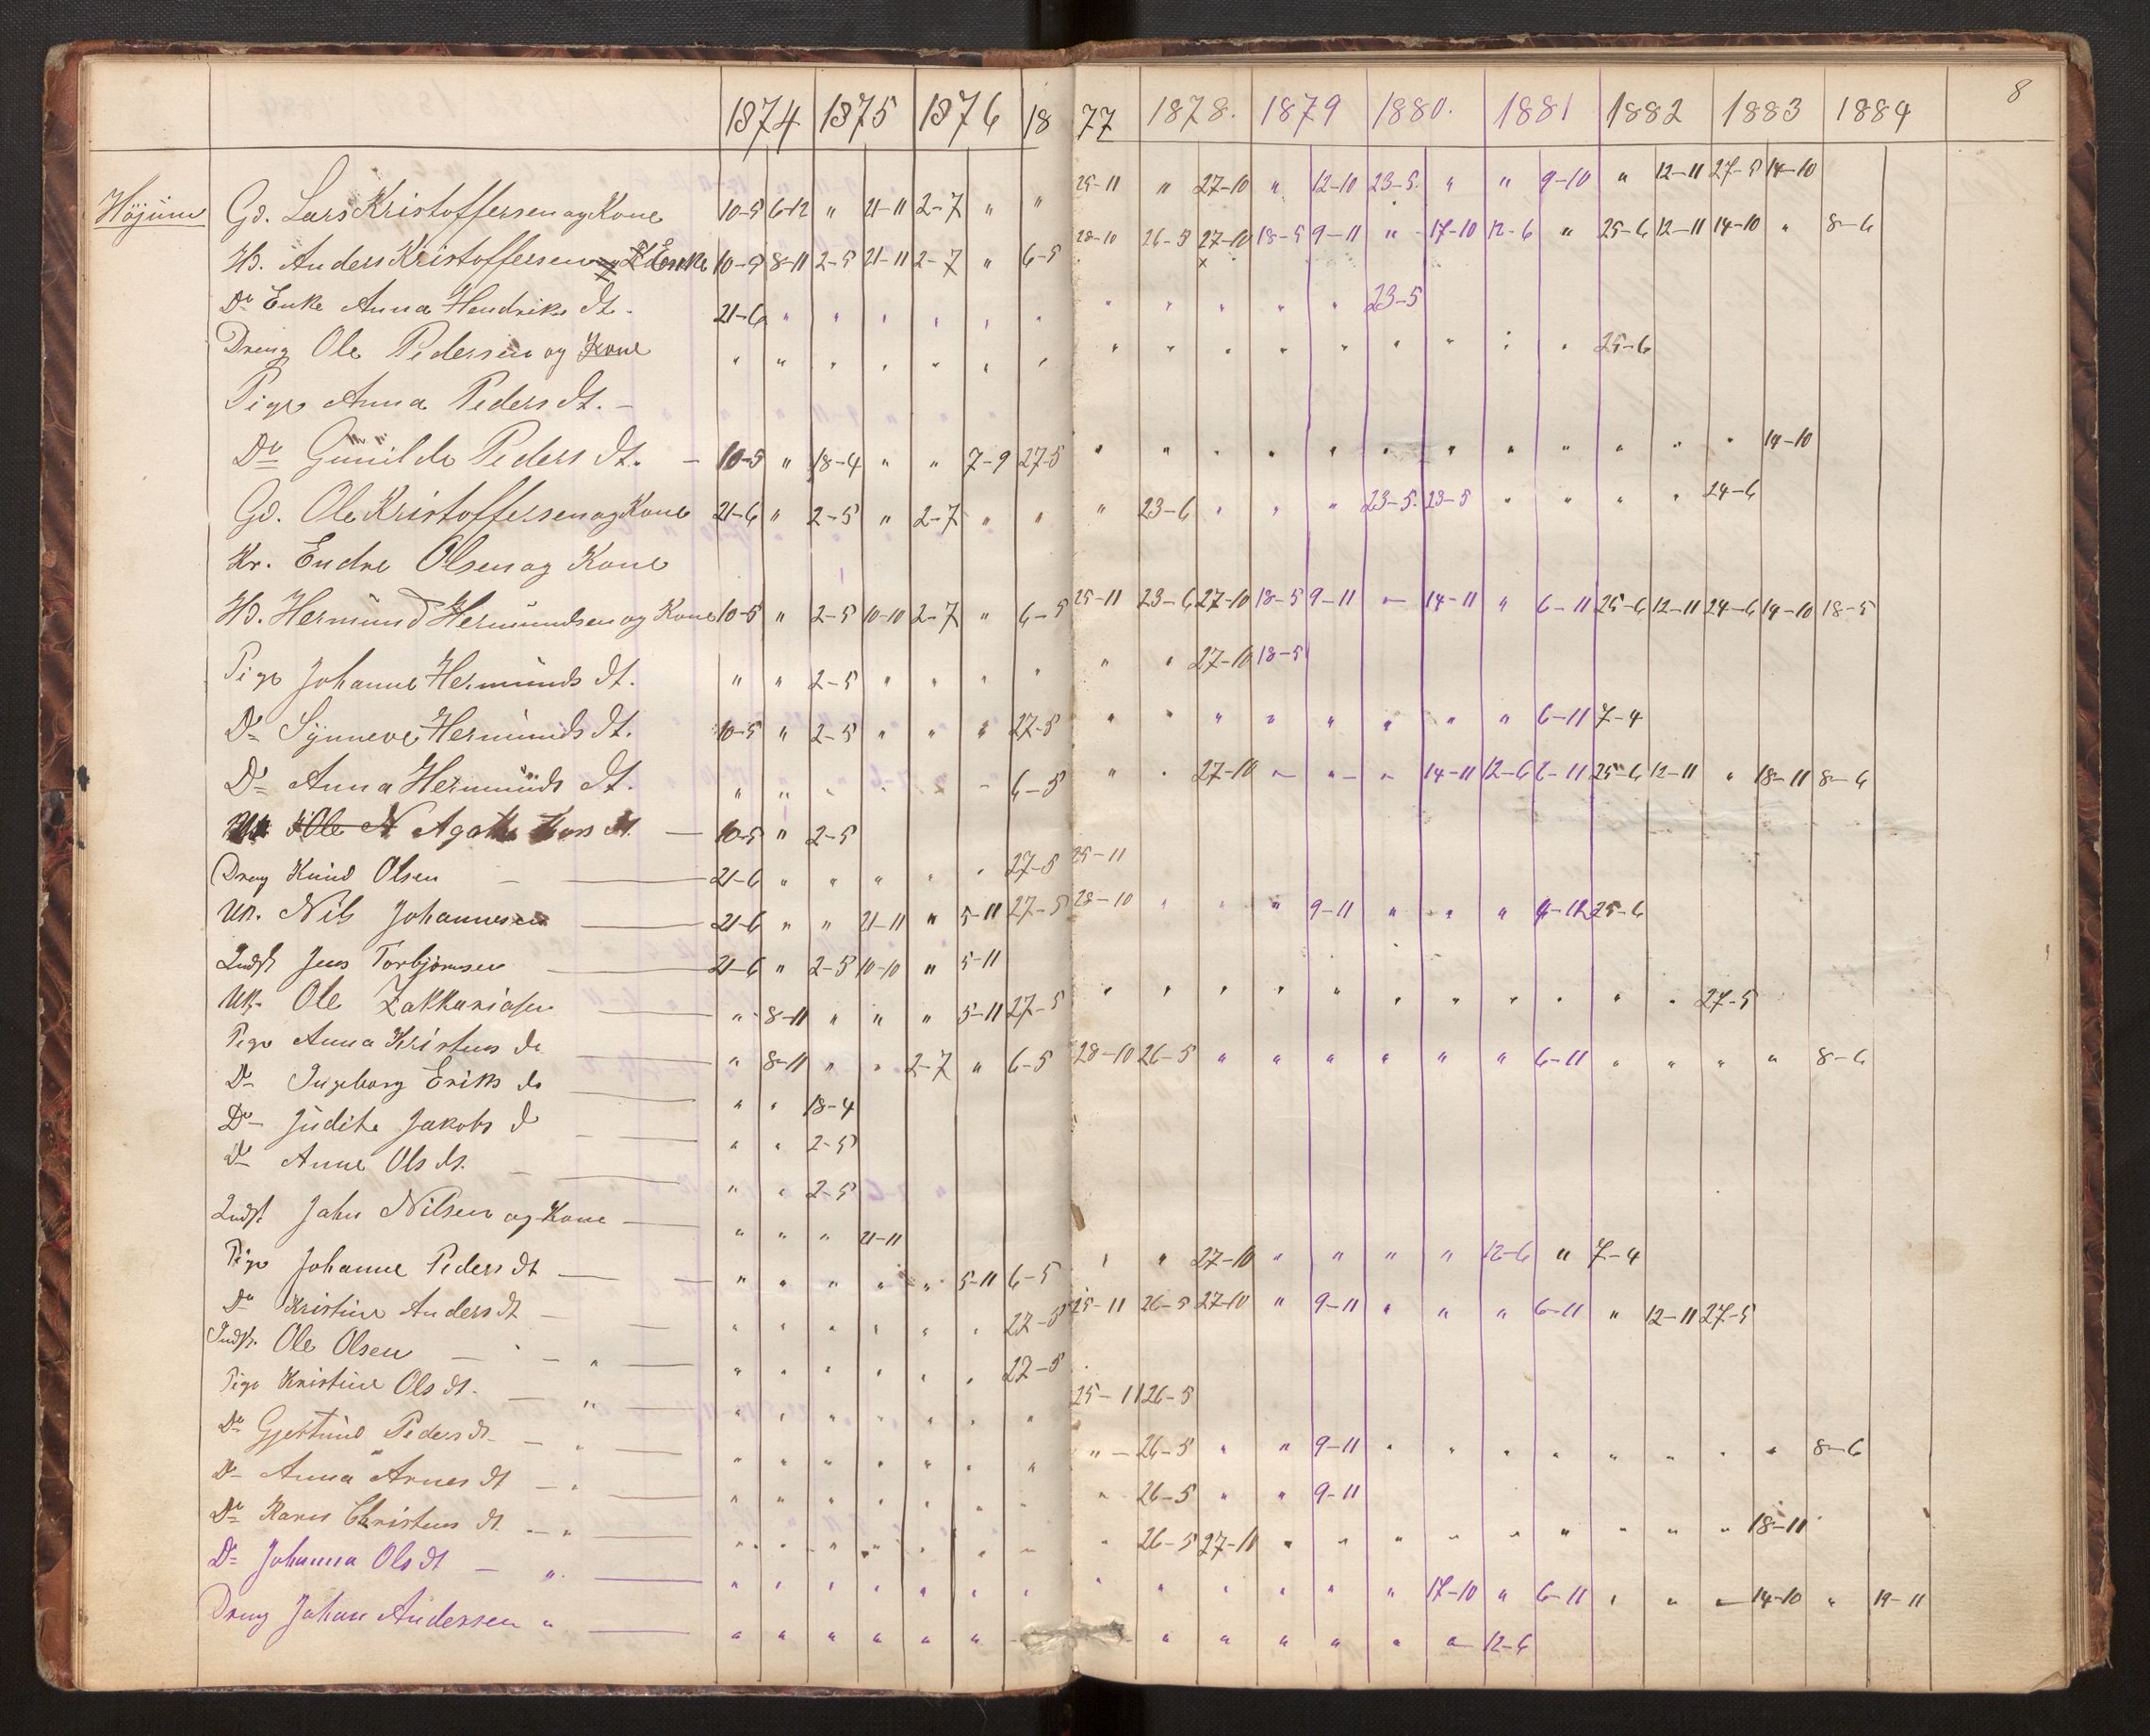 8
1874 1875 1876 18 77 1878. 1879 1880. 1881 1882 1883 1884
Höjum Gd. Lars Kristoffersen og Kone 10-5 6-12 " 21-11 2-7 " " 25-11 " 27-10 " 12-10 23-5. " " 9-10 " 12-11 27-5 14-10
Hd. Anders Kristoffersen Enke 10-5 8-11 2-5 21-11 2-7 " 6-5 28-10 26-5 27-10 18-5 9-11 " 17-10 12-6 " 25-6 12-11 14-10 " 8-6
Do Enke Anna Hendriks dt. 21-6 " " " " " " " " " " " 23-5
Dreng Ole Pedersen og Kone " " " " " " " " " " " " " " " " 25-6
Pige Anna Peders dt. –
Do Gunilde Peders dt. – 10-5 " 18-4 " " 7-9 27-5 " " " " " " " " " " " " 14-10
Gd. Ole Kristoffersen og Kone 21-6 " 2-5 " 2-7 " " " 23-6 " " " 23-5. 23-5 " " " " 24-6
Kr. Endre Olsen og Kone
Hd. Hermund Hermundsen og Kone 10-5 " 2-5 10-10 2-7 " 6-5 25-11 23-6 27-10 18-5 9-11 " 14-11 " 6-11 25-6 12-11 24-6 14-10 18-5
Pige Johanne Hermunds dt. " " 2-5 " " " " " " 27-10 18-5
Do Synneve Hermunds dt. 10-5 " 2-5 " " " 27-5 " " " " " " " " 6-11 7-4
Do Anna Hermunds dt. " " " " " " 6-5 " " 27-10 " " " 14-11 12-6 6-11 25-6 12-11 " 18-11 8-6
Ole N Agathe Lars dt. — 10-5 " 2-5
Dreng Knud Olsen — 21-6 " " " " " 27-5 25-11
Uk. Nils Johannesen — 21-6 " " 21-11 " 5-11 27-5 28-10 " " " 9-11 " " " 4-12 25-6
Indst Jens Torbjörnsen — 21-6 " 2-5 10-10 " 5-11
Uk. Ole Zakkariasen — " 8-11 " " " 5-11 27-5 " " " " " " " " " " " 27-5
Pige Anna Kristens dr — " 8-11 " " 2-7 " 6-5 28-10 26-5 " " " " " " 6-11 " " " " 8-6
Do Ingeborg Eriks dr — " " 18-4
Do Judithe Jakobs d — " " 2-5
Do Anne Ols dt. — " " 2-5
Indst Jahn Nilsen og Kone — " " " 21-11
Pige Johanne Peders dt — " " " " " 5-11 6-5 " " 27-10 " " " " 12-6 " 7-4
Do Kristine Anders dt — " " " " " " 27-5 25-11 26-5 27-10 " 9-11 " " " 6-11 " 12-11 27-5
Indst. Ole Olsen — " — " " " " " " 27-5
Pige Kristine Ols dt. — " — " " " " " " " 25-11 26-5
Do Gjertrud Peders dt — " — " " " " " " " " 26-5 " " 9-11 " " " " " " " " 8-6
Do Anna Arnes dt — " — " " " " " " " " 26-5 " " 9-11
Do Karen Christens dt — " — " " " " " " " " 26-5 27-10 " " " " " " " " " 18-11
Do Johanna Ols dt — " — " " " " " " " " " " " " " 17-10 " 6-11 " " " 14-10 " 19-11
Dreng Johan Andersen " — " " " " " " " " " " " " " 12-6